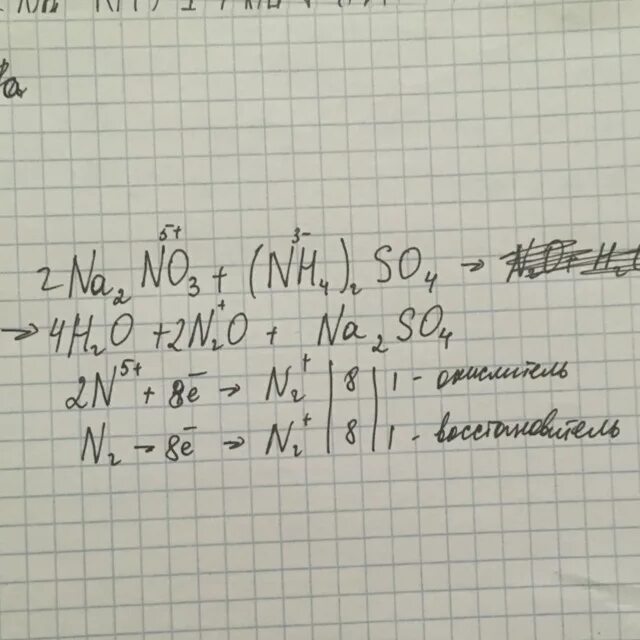 2Na₂N⁵⁺O₃ + (N³⁻H₄)₂SO₄ →
→ 4H₂O + 2N₂⁺O + Na₂SO₄
2N⁵⁺ + 8ē → N₂⁺ | 8 | 1 - окислитель
N₂ - 8ē → N₂⁺ | 8 | 1 - восстановитель